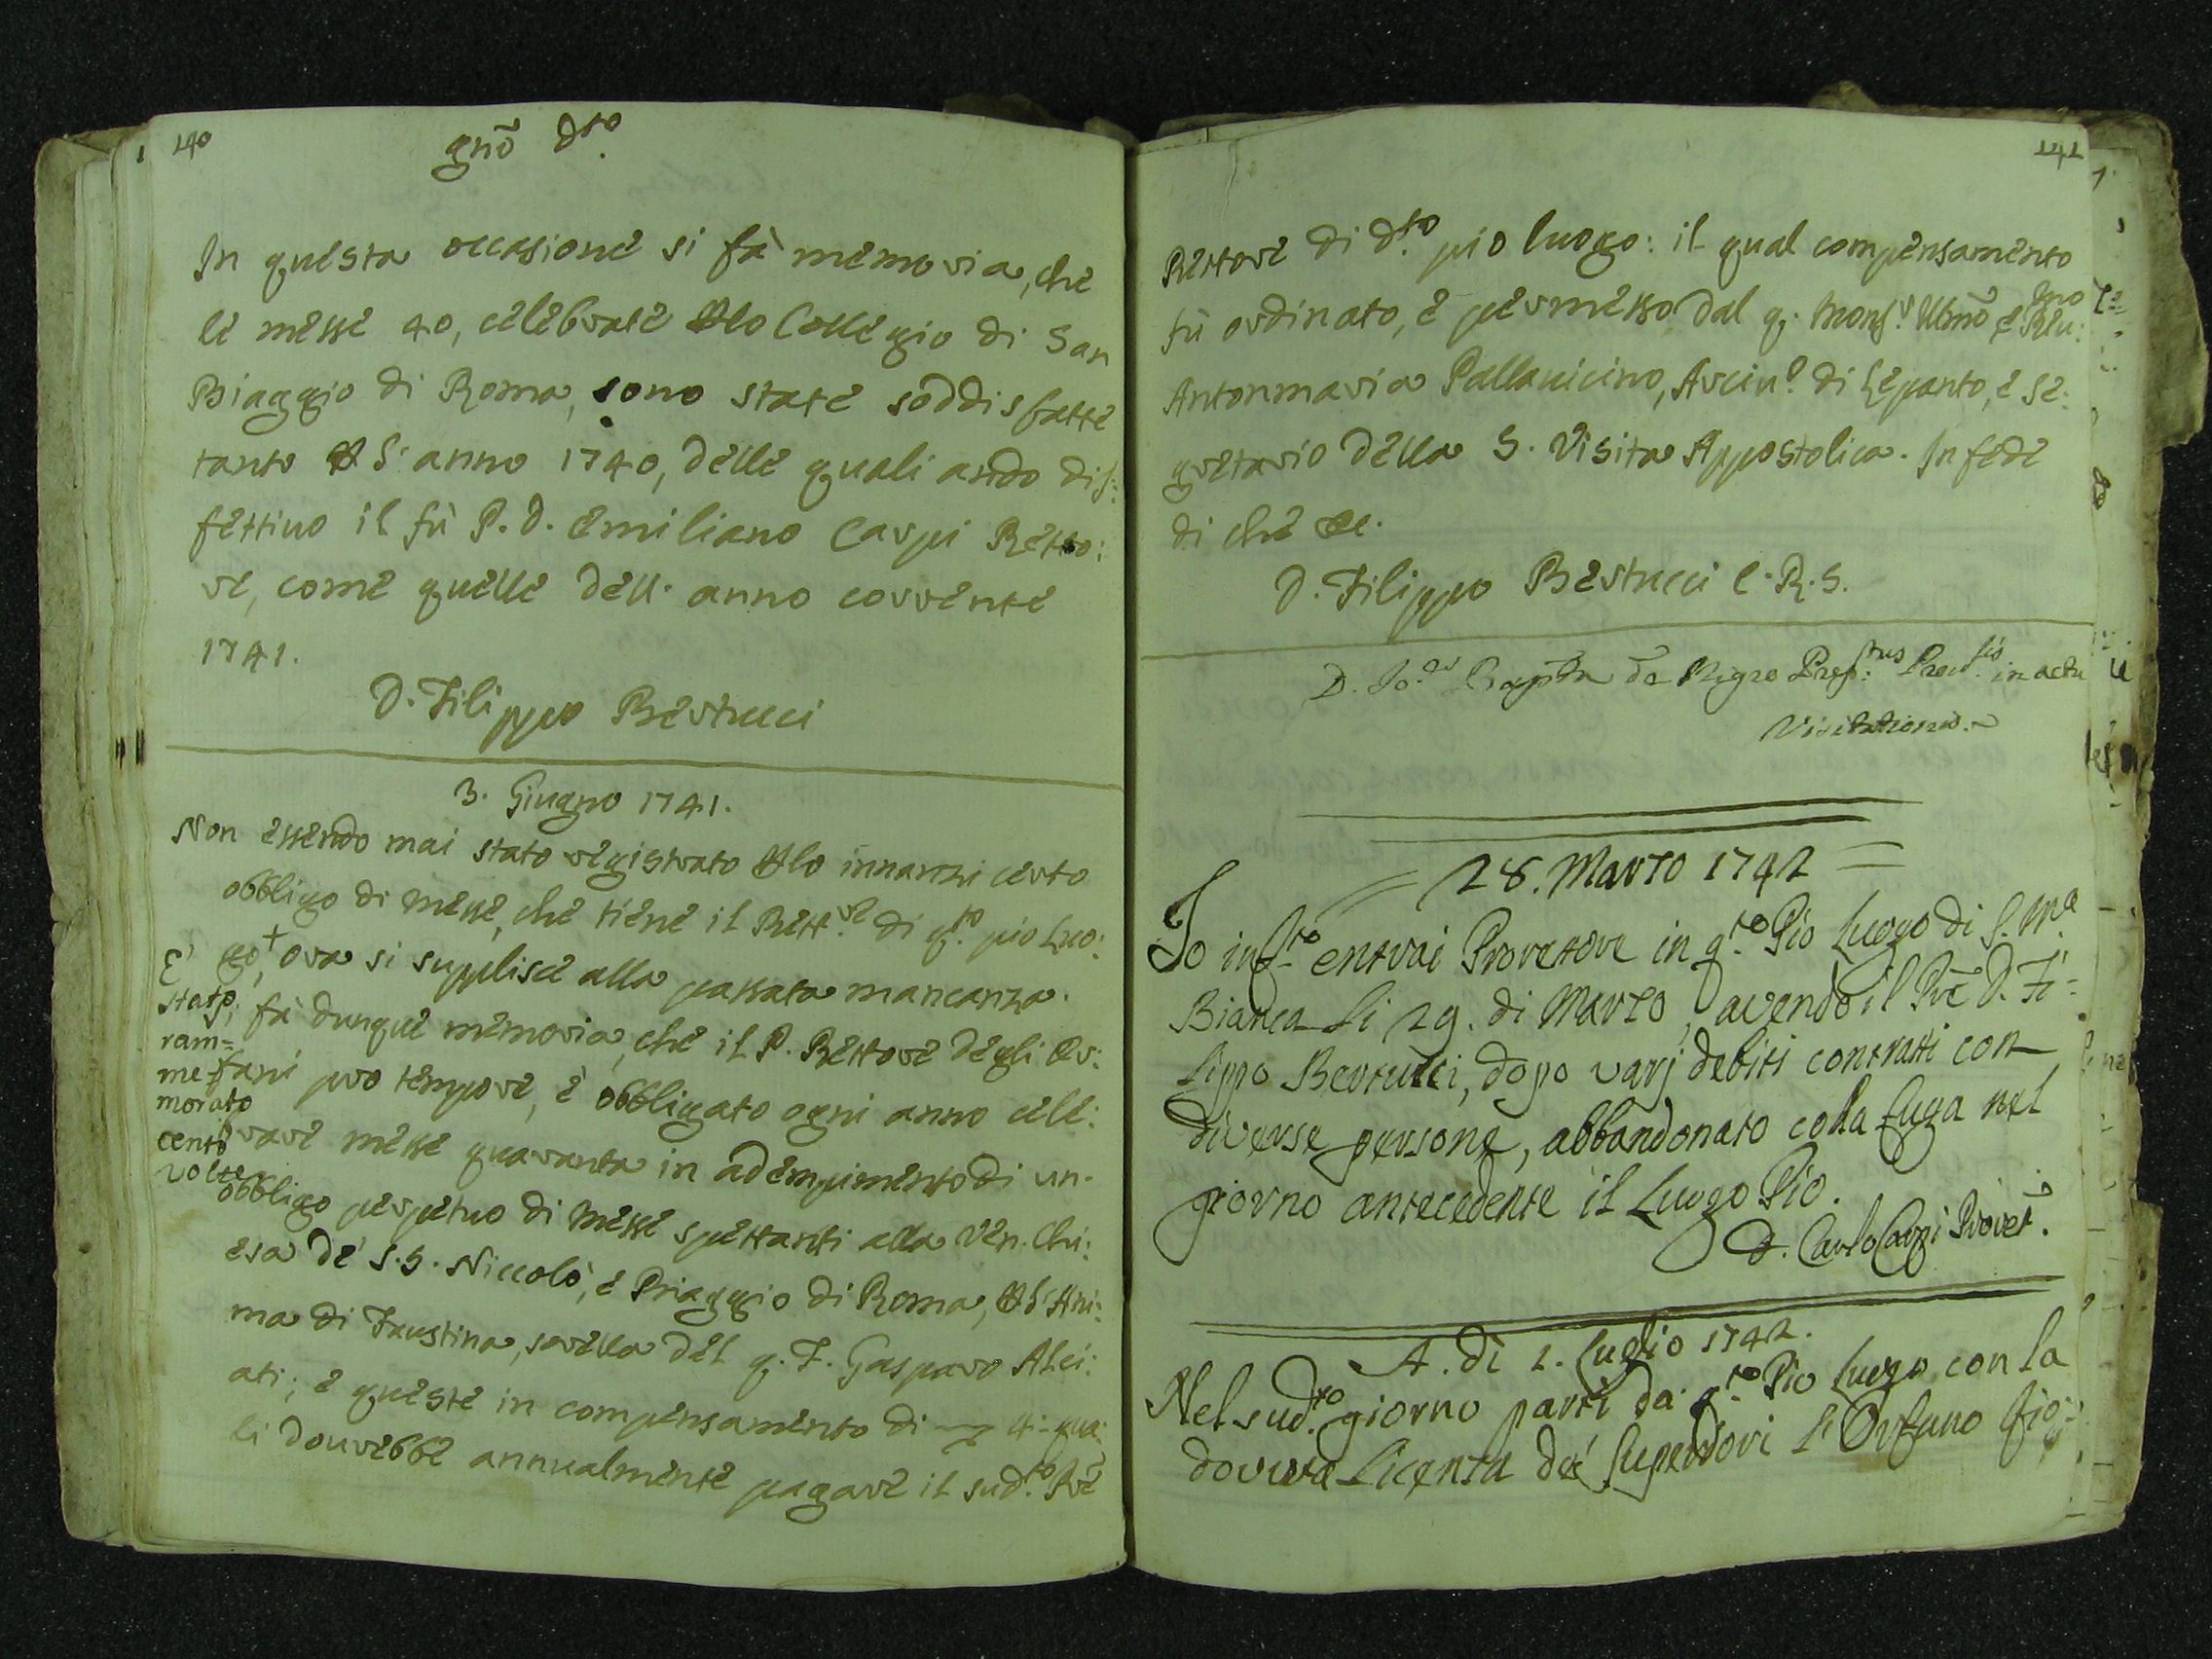 140
gnõ d.to
In questa occasione si fà memoria, che
le messe 40, celebrate p lo Collegio di San
Biaggio di Roma, sono state soddisfatte
tanto p l'anno 1740, delle quali andò dif:
fettivo il fù P. D. Emiliano Carpi Retto:
re, come quelle dell' anno corrente
1741.
D. Filippo Bertucci
3. Giugno 1741.
Non essendo mai stato registrato p lo innanzi certo
obbligo di Messe, che tiene il Rett.re di q.to pio Luo:
go+, ora si supplisce alla passata mancanza.
fà dunque memoria, che il P. Rettore degli Or:
fani pro tempore, è obbligato ogni anno cele:
brare messe quaranta in adempimento di un'
obbligo perpetuo di Messe spettanti alla Ven. Chi:
esa de' S.S. Niccolò, e Biaggio di Roma, p l'Ani:
ma di Faustina, sorella del q. F. Gasparo Alci:
ati; e queste in compensamento di 4. qua:
li dovrebbe annualmente pagare il sud.to Prē
E'
stato
ram=
me=
morato
cento
volte
141
Rettore di d.to pio luogo: il qual compensamento
fù ordinato, e permesso dal q. Mons.r Illmõ, e Rev:mo
Antonmaria Pallavicino, Arciv.o di Lepanto, e Se:
gretario della S. Visita Appostolica. In fede
di che &c.
D. Filippo Bertucci C.R.S.
D. Jo.es Bapta de Nigro Prep.tus Prov.lis in actu
Visitationis.
28. Marzo 1742
Io inf.to entrai Provetore in q.to Pio Luogo di S. M.a
Bianca li 29. di Marzo, avendo il Prē D. Fi=
lippo Bertucci, dopo varj debiti contratti con
diverse persone, abbandonato colla fuga nel
giorno antecedente il Luogo Pio.
D. Carlo Carpi Provet.
A. dì 1. Luglio 1742.
Nel sud.to giorno partì da q.to Pio Luogo con la
dovuta licenza de' Superiori l'Orfano Gio: